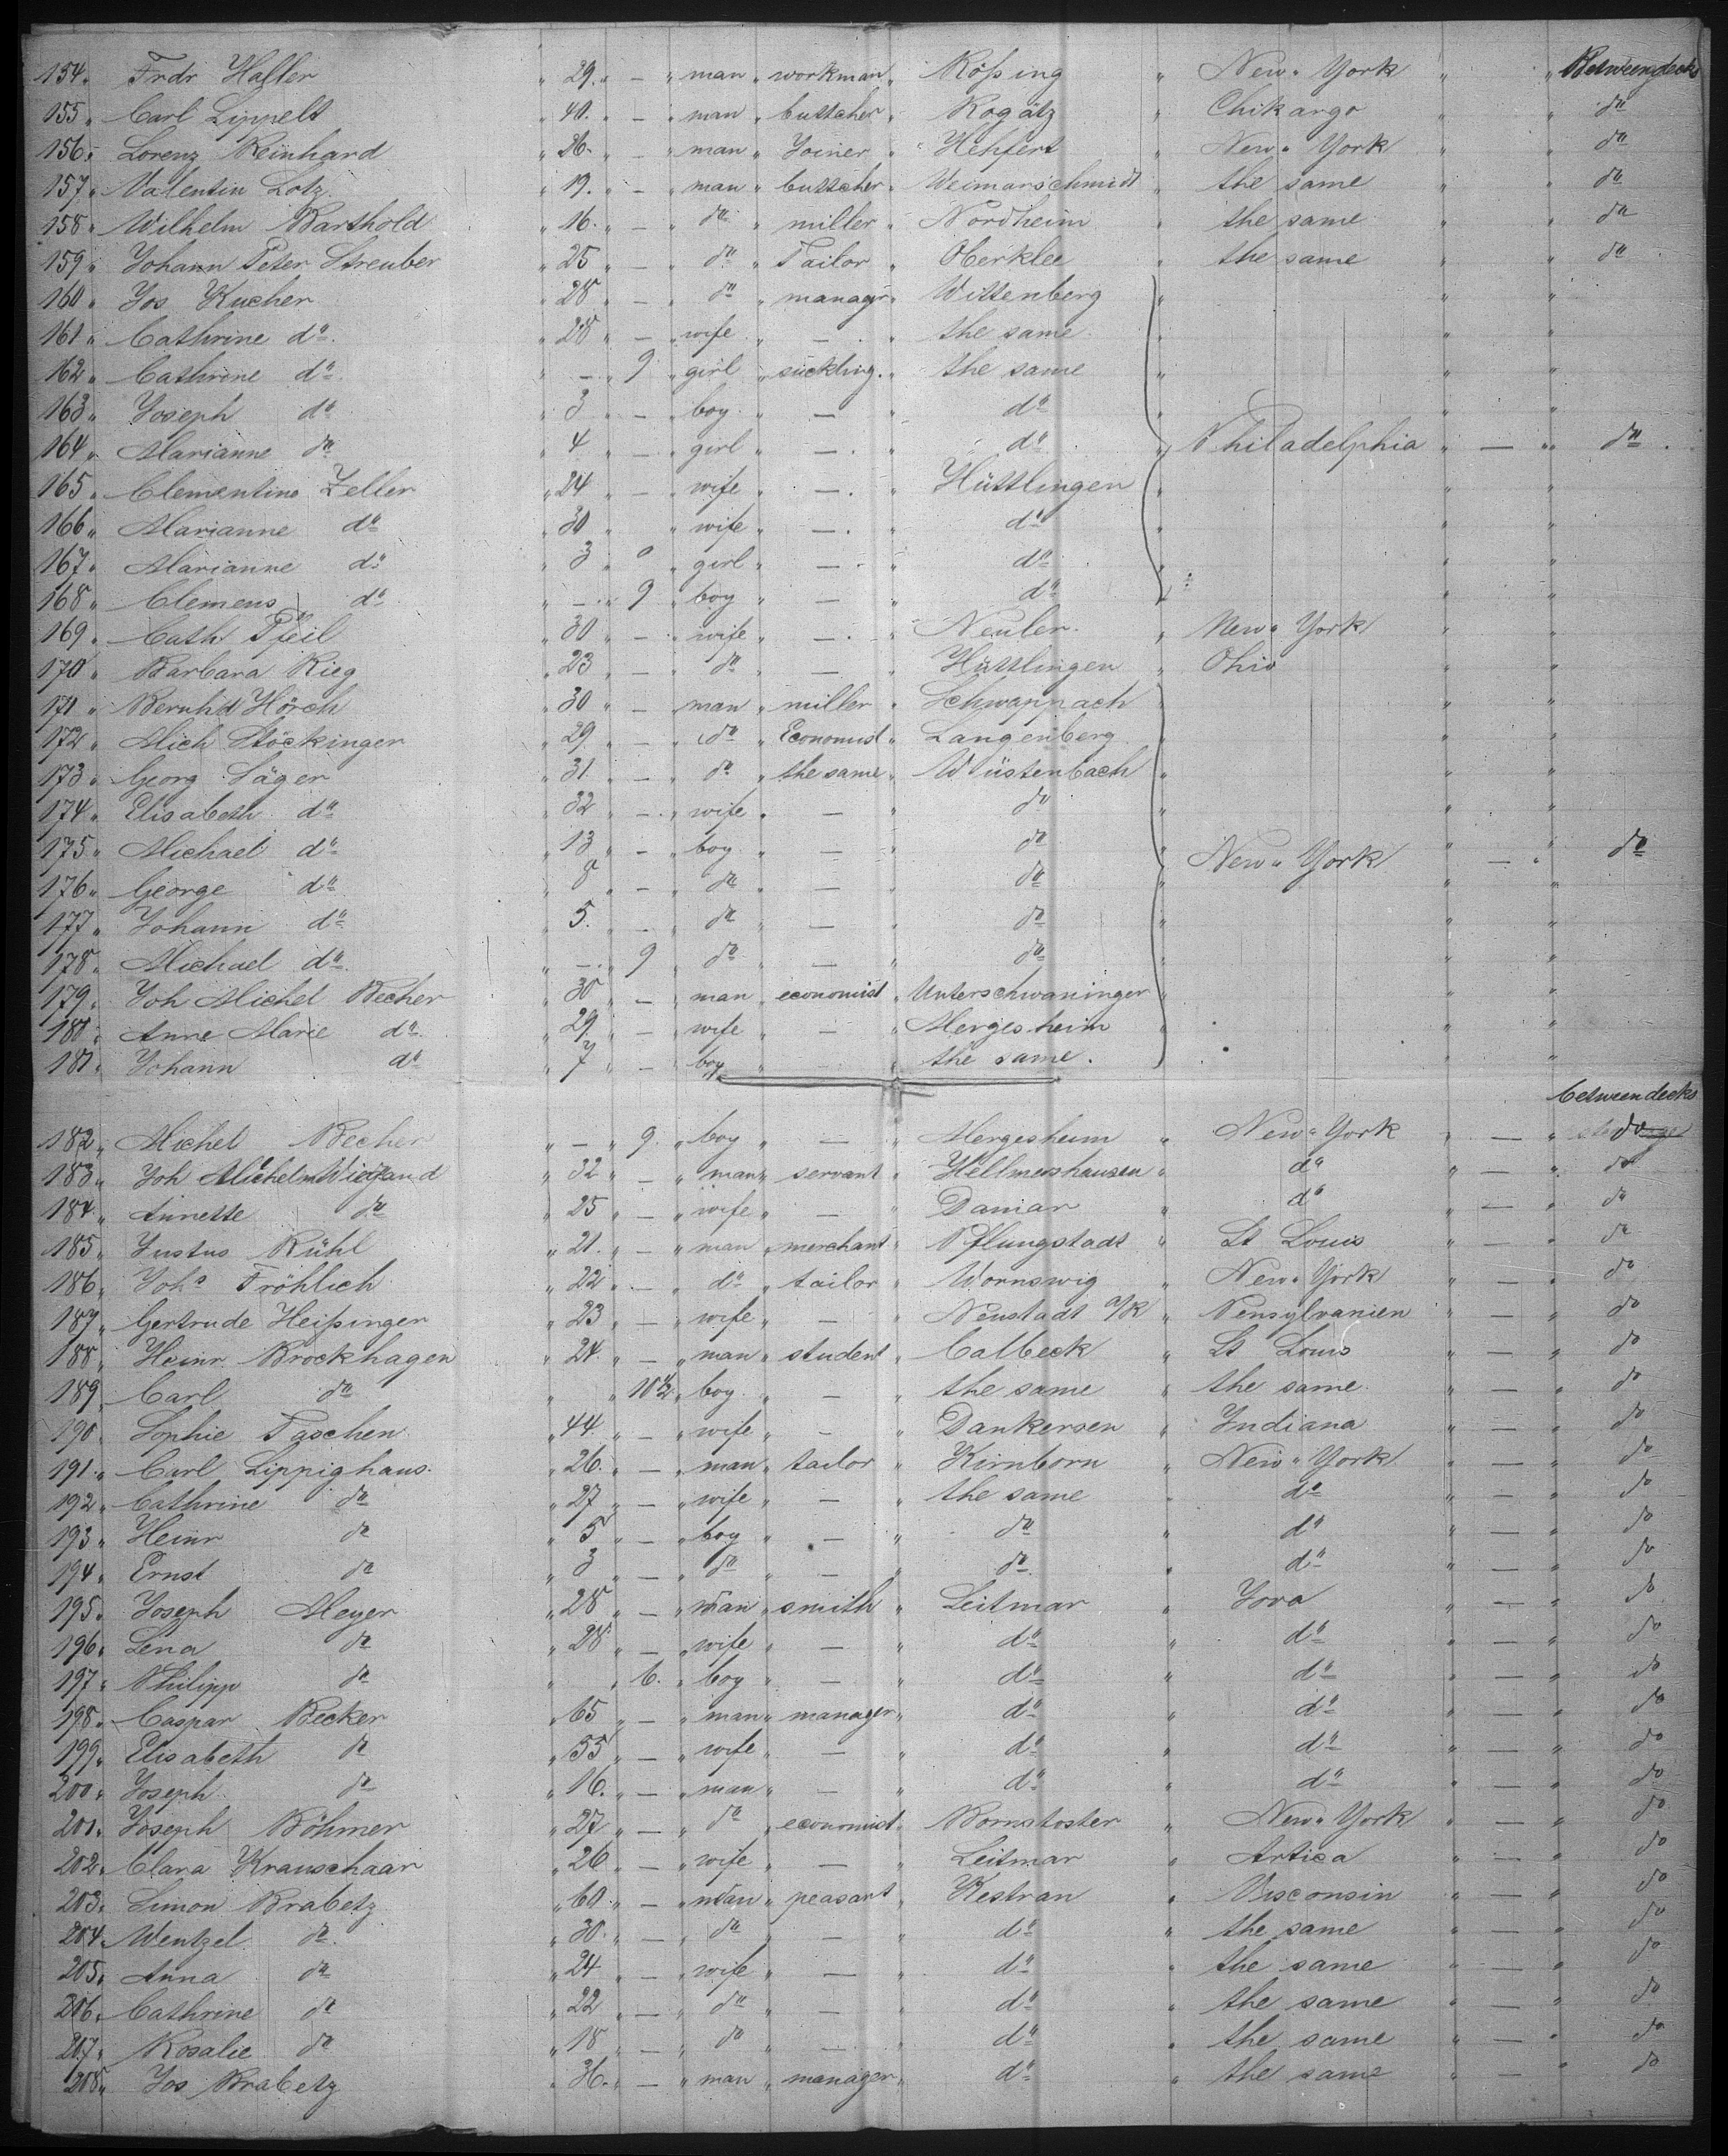 154. Frdr Haller " 29. " — " man " workman " Rößing " New-York " " Betweendecks
155 " Carl Lippelt " 40. " — " man " buttcher " Rogätz " Chikargo " " do
156 " Lorenz Reinhard " 26. " — " man " Joiner " Hehfert " New-York " " do
157 " Valentin Lotz " 19. " — " man " buttcher " Weimarschmidt " the same " " do
158 " Wilhelm Barthold " 16. " — " do " miller " Nordheim " the same " " do
159 " Johann Peter Streuber " 25 " — " do " Tailor " Oberklee " the same " " do
160 " Jos Kucher " 28 " — " do " managr " Wittenberg " " "
161 " Cathrine do " 28 " — " wife " — " the same " " "
162 " Cathrine do " — " 9 " girl " suckling. " the same " " "
163 " Joseph do " 3 " — " boy " — " do " " "
164 " Marianne do " 4 " — " girl " — " do " Philadelphia " — " do
165 " Clementine Zeller " 24 " — " wife " — " Hüttlingen " " "
166 " Marianne do " 30 " " wife " — " do " " "
167 " Marianne do " 3 " " girl " — " do " " "
168 " Clemens do " — " 9 " boy " — " do " " "
169 " Cath Pfeil " 30 " — " wife " — " Neuler " New-York " "
170 " Barbara Rieg " 23 " — " do " — " Hüttlingen " Ohio " "
171 " Bernhd Hörch " 30 " — " man " miller " Schwappach " " "
172 " Mich Stöckinger " 29 " — " do " Economist " Langenberg " " "
173 " Georg Säger " 31. " — " do " the same " Wüstenbach " " "
174 " Elisabeth do " 32 " — " wife " — " do " " "
175 " Michael do " 13 " — " boy " — " do " New-York " — " do
176 " George do " 8 " — " do " — " do " " "
177 " Johann do " 5. " — " do " — " do " " "
178 " Michael do " — " 9 " do " — " do " " "
179 " Joh Michel Becher " 30 " — " man " economist " Unterschwaninger " " "
180 " Anne Marie do " 29 " — " wife " — " Mergesheim " " "
181 " Johann do " 7 " — " boy " — " the same. " " "
betweendecks
182 " Michel Becher " — " 9. " boy " — " Mergesheim " New-York " — " do
183 " Joh Wiegand " 32 " — " man " servant " Hellmershausen " do " — " do
184 " Annette do " 25 " — " wife " — " Damar " do " — " do
185 " Justus Rühl " 21. " — " man " merchant " Pflungstadt " St Louis " — " do
186 " Joh. Fröhlich " 22 " — " do " tailor " Wornswig " New-York " — " do
187 " Gertrude Heißinger " 23 " — " wife " — " Neustadt a/K " Pensylvanien " — " do
188 " Heinr Brockhagen " 24 " — " man " student " Calbeck " St Louis " — " do
189 " Carl do " " 10½ " boy " — " the same " the same " — " do
190 " Sophie Paschen " 44 " — " wife " — " Dankersen " Indiana " — " do
191 " Carl Lippighaus " 26. " — " man " tailor " Kirnborn " New-York " — " do
192 " Cathrine do " 27 " — " wife " — " the same " do " — " do
193 " Heinr do " 5 " — " boy " — " do " do " — " do
194 " Ernst do " 3 " — " do " — " do " do " — " do
195 " Joseph Meyer " 28 " — " man " smith " Leitmar " Jova " — " do
196 " Lena do " 28 " — " wife " — " do " do " — " do
197 " Philipp do " " 6. " boy " — " do " do " — " do
198 " Caspar Becker " 65 " — " man " manager " do " do " — " do
199 " Elisabeth do " 55 " — " wife " — " do " do " — " do
200 " Joseph do " 16. " — " man " — " do " do " — " do
201 " Joseph Böhmer " 27 " — " do " economist " Bornstoster " New-York " — " do
202 " Clara Krauschaar " 26 " — " wife " — " Leitmar " Artica " — " do
203 " Simon Brabetz " 60 " — " man " peasant " Kestran " Visconsin " — " do
204 " Wentzel do " 30. " — " do " — " do " the same " — " do
205 " Anna do " 24 " — " wife " — " do " the same " — " do
206 " Cathrine do " 22 " — " do " — " do " the same " — " do
207 " Rosalie do " 18 " — " do " — " do " the same " — " do
208 " Jos Brabetz " 36. " — " man " manager " do " the same " — " do